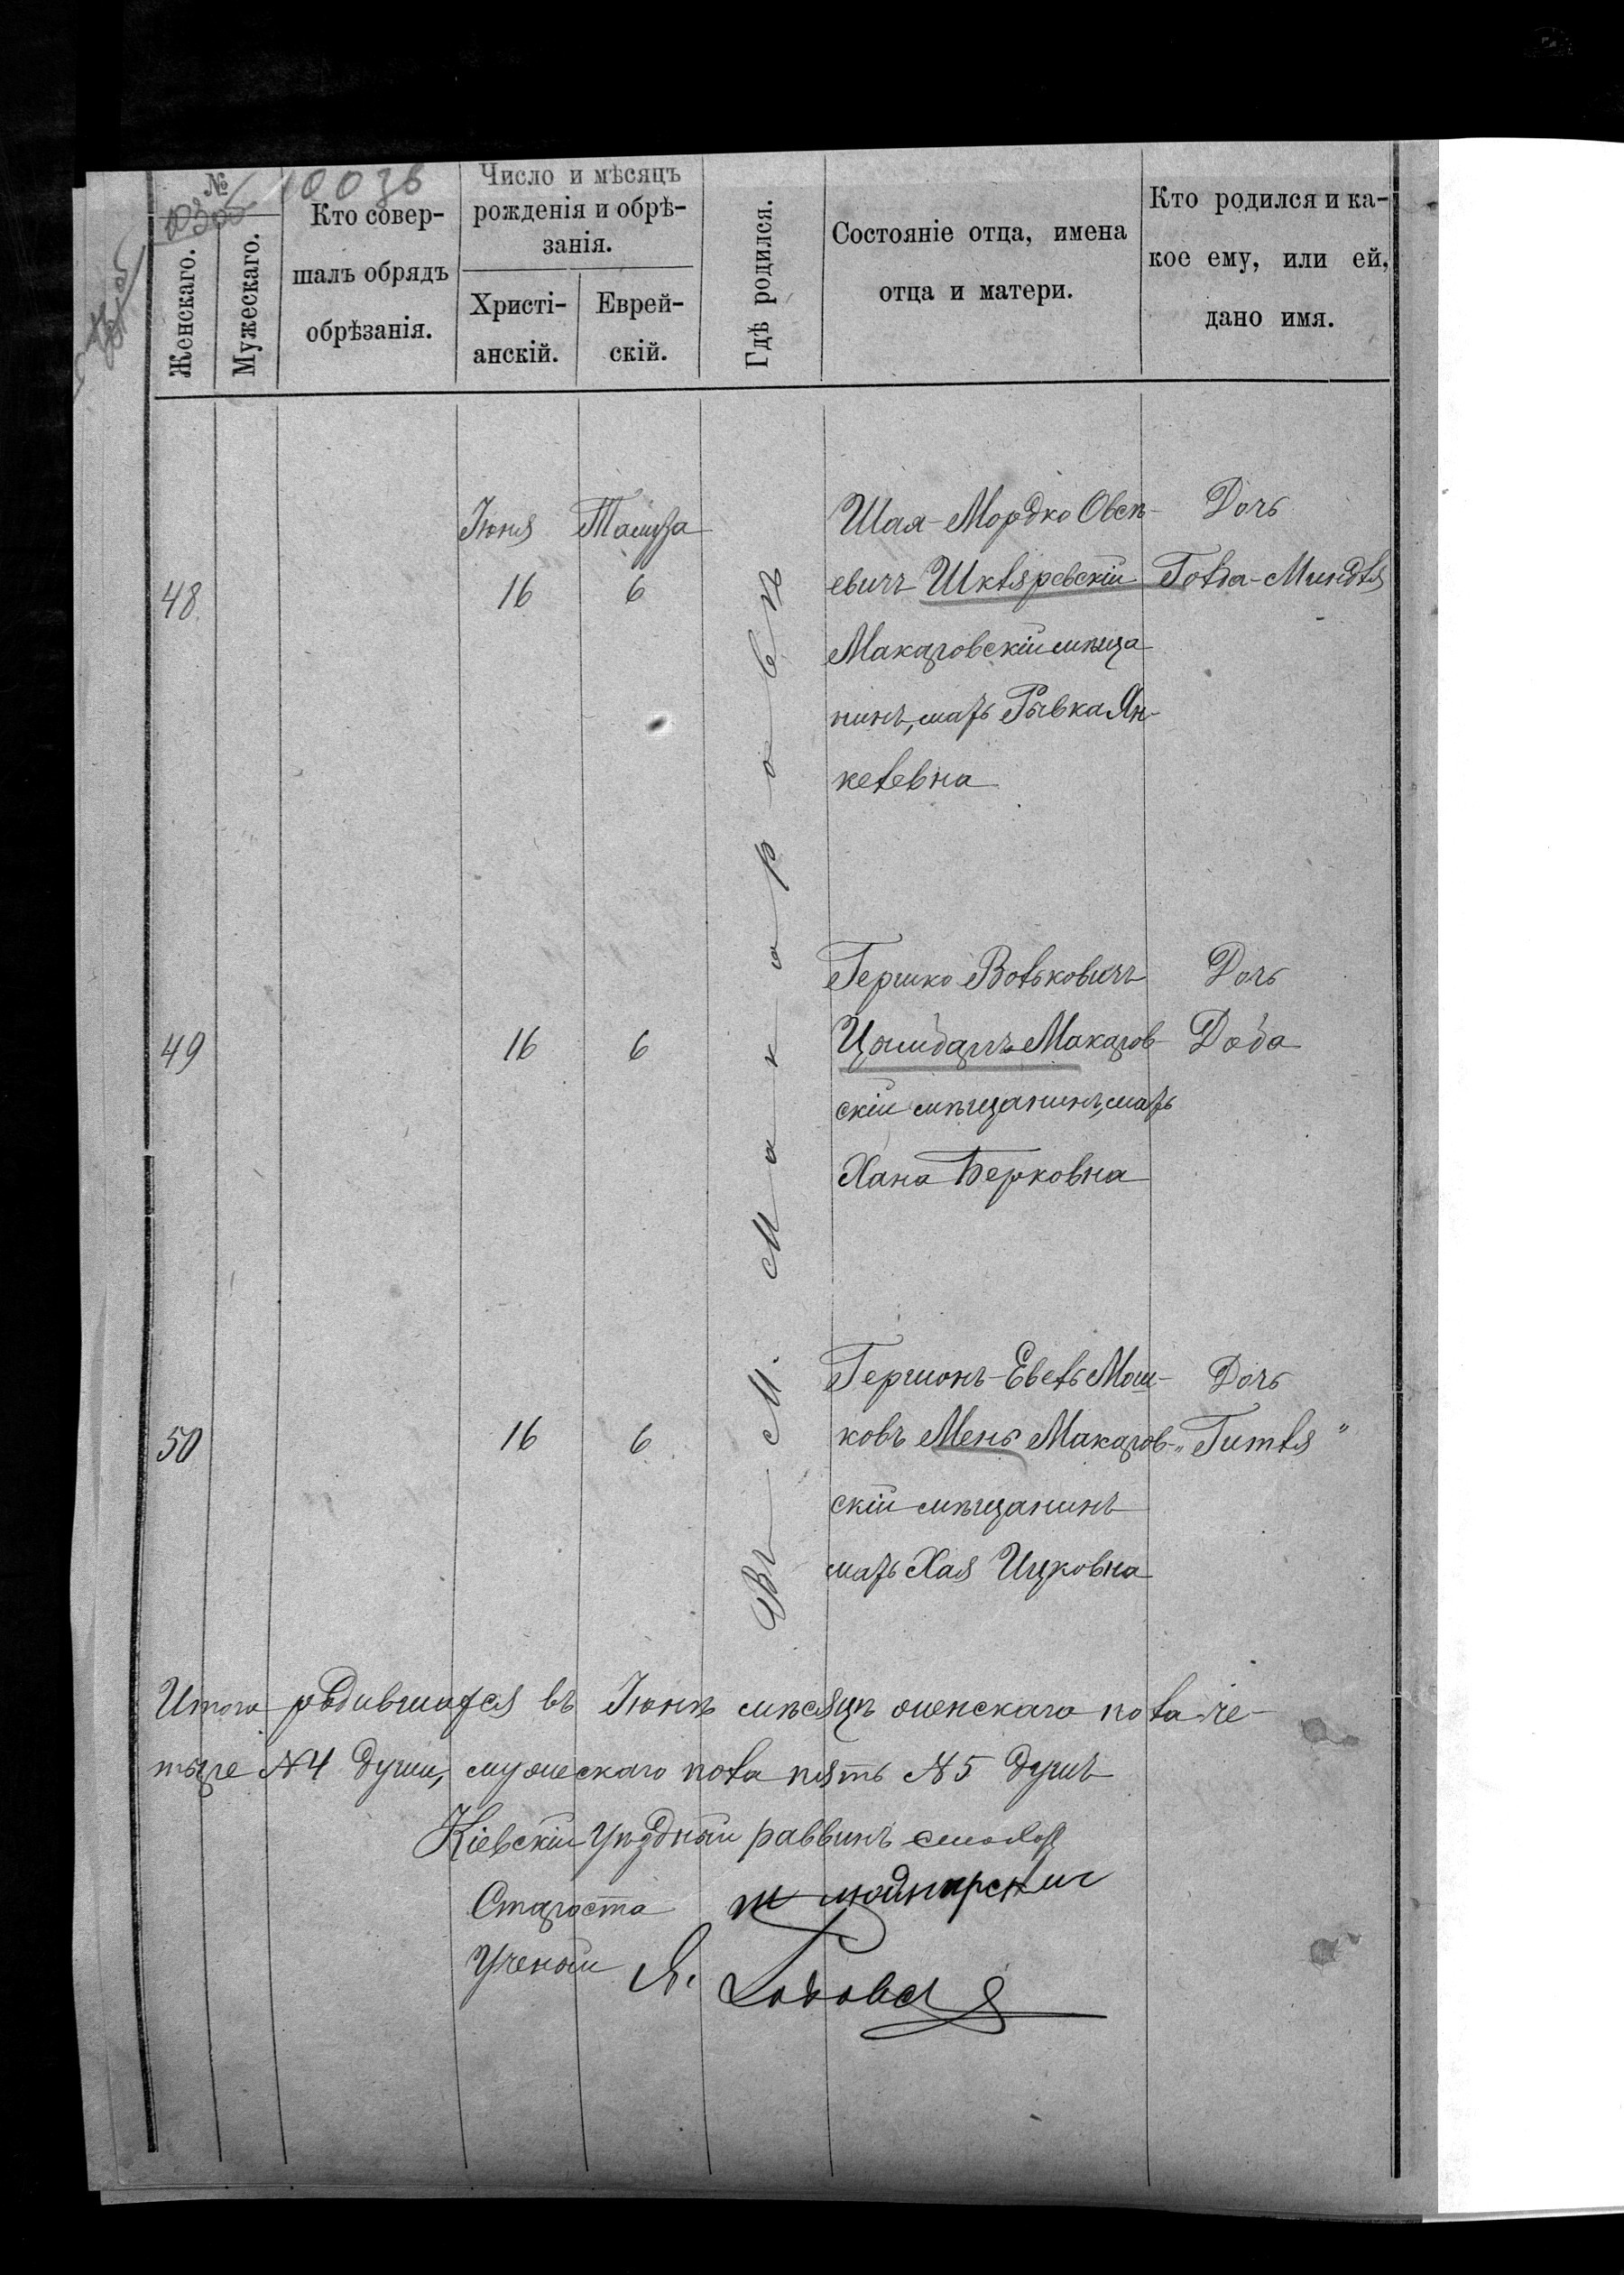 №
Женскаго.
Мужескаго.
Кто совер-
шалъ обрядъ
обрѣзанія.
Число и мѣсяцъ
рожденія и обрѣ-
занія.
Христі-
анскій.
Еврей-
скій.
Гдѣ родился.
Состояніе отца, имена
отца и матери.
Кто родился и ка-
кое ему, или ей,
дано имя.
Въ М. Макаровѣ
Іюня Тамуза
48 16 6
Шая-Мордко Овсѣ-
евичъ Шкляревскій
Макаровскій мѣща
нинъ, мать Рывка Ян-
келевна
Дочь
Голда-Миндля
49 16 6
Гершко Волькович
Макаров-
скій мѣщанинъ, мать
Хана Берковна
Дочь
Доба
50 16 6
Гершонъ-Евель Мош-
ковъ Мень Макаров-
скій мѣщанинъ
мать Хая Ицковна
Дочь
„Гитля"
Итого родившихся въ Іюнѣ мѣсяцѣ женскаго пола че-
тыре №4 души, мужескаго пола пять №5 душъ
Кіевскій Уѣздный раввинъ
Староста
Ученый Я.